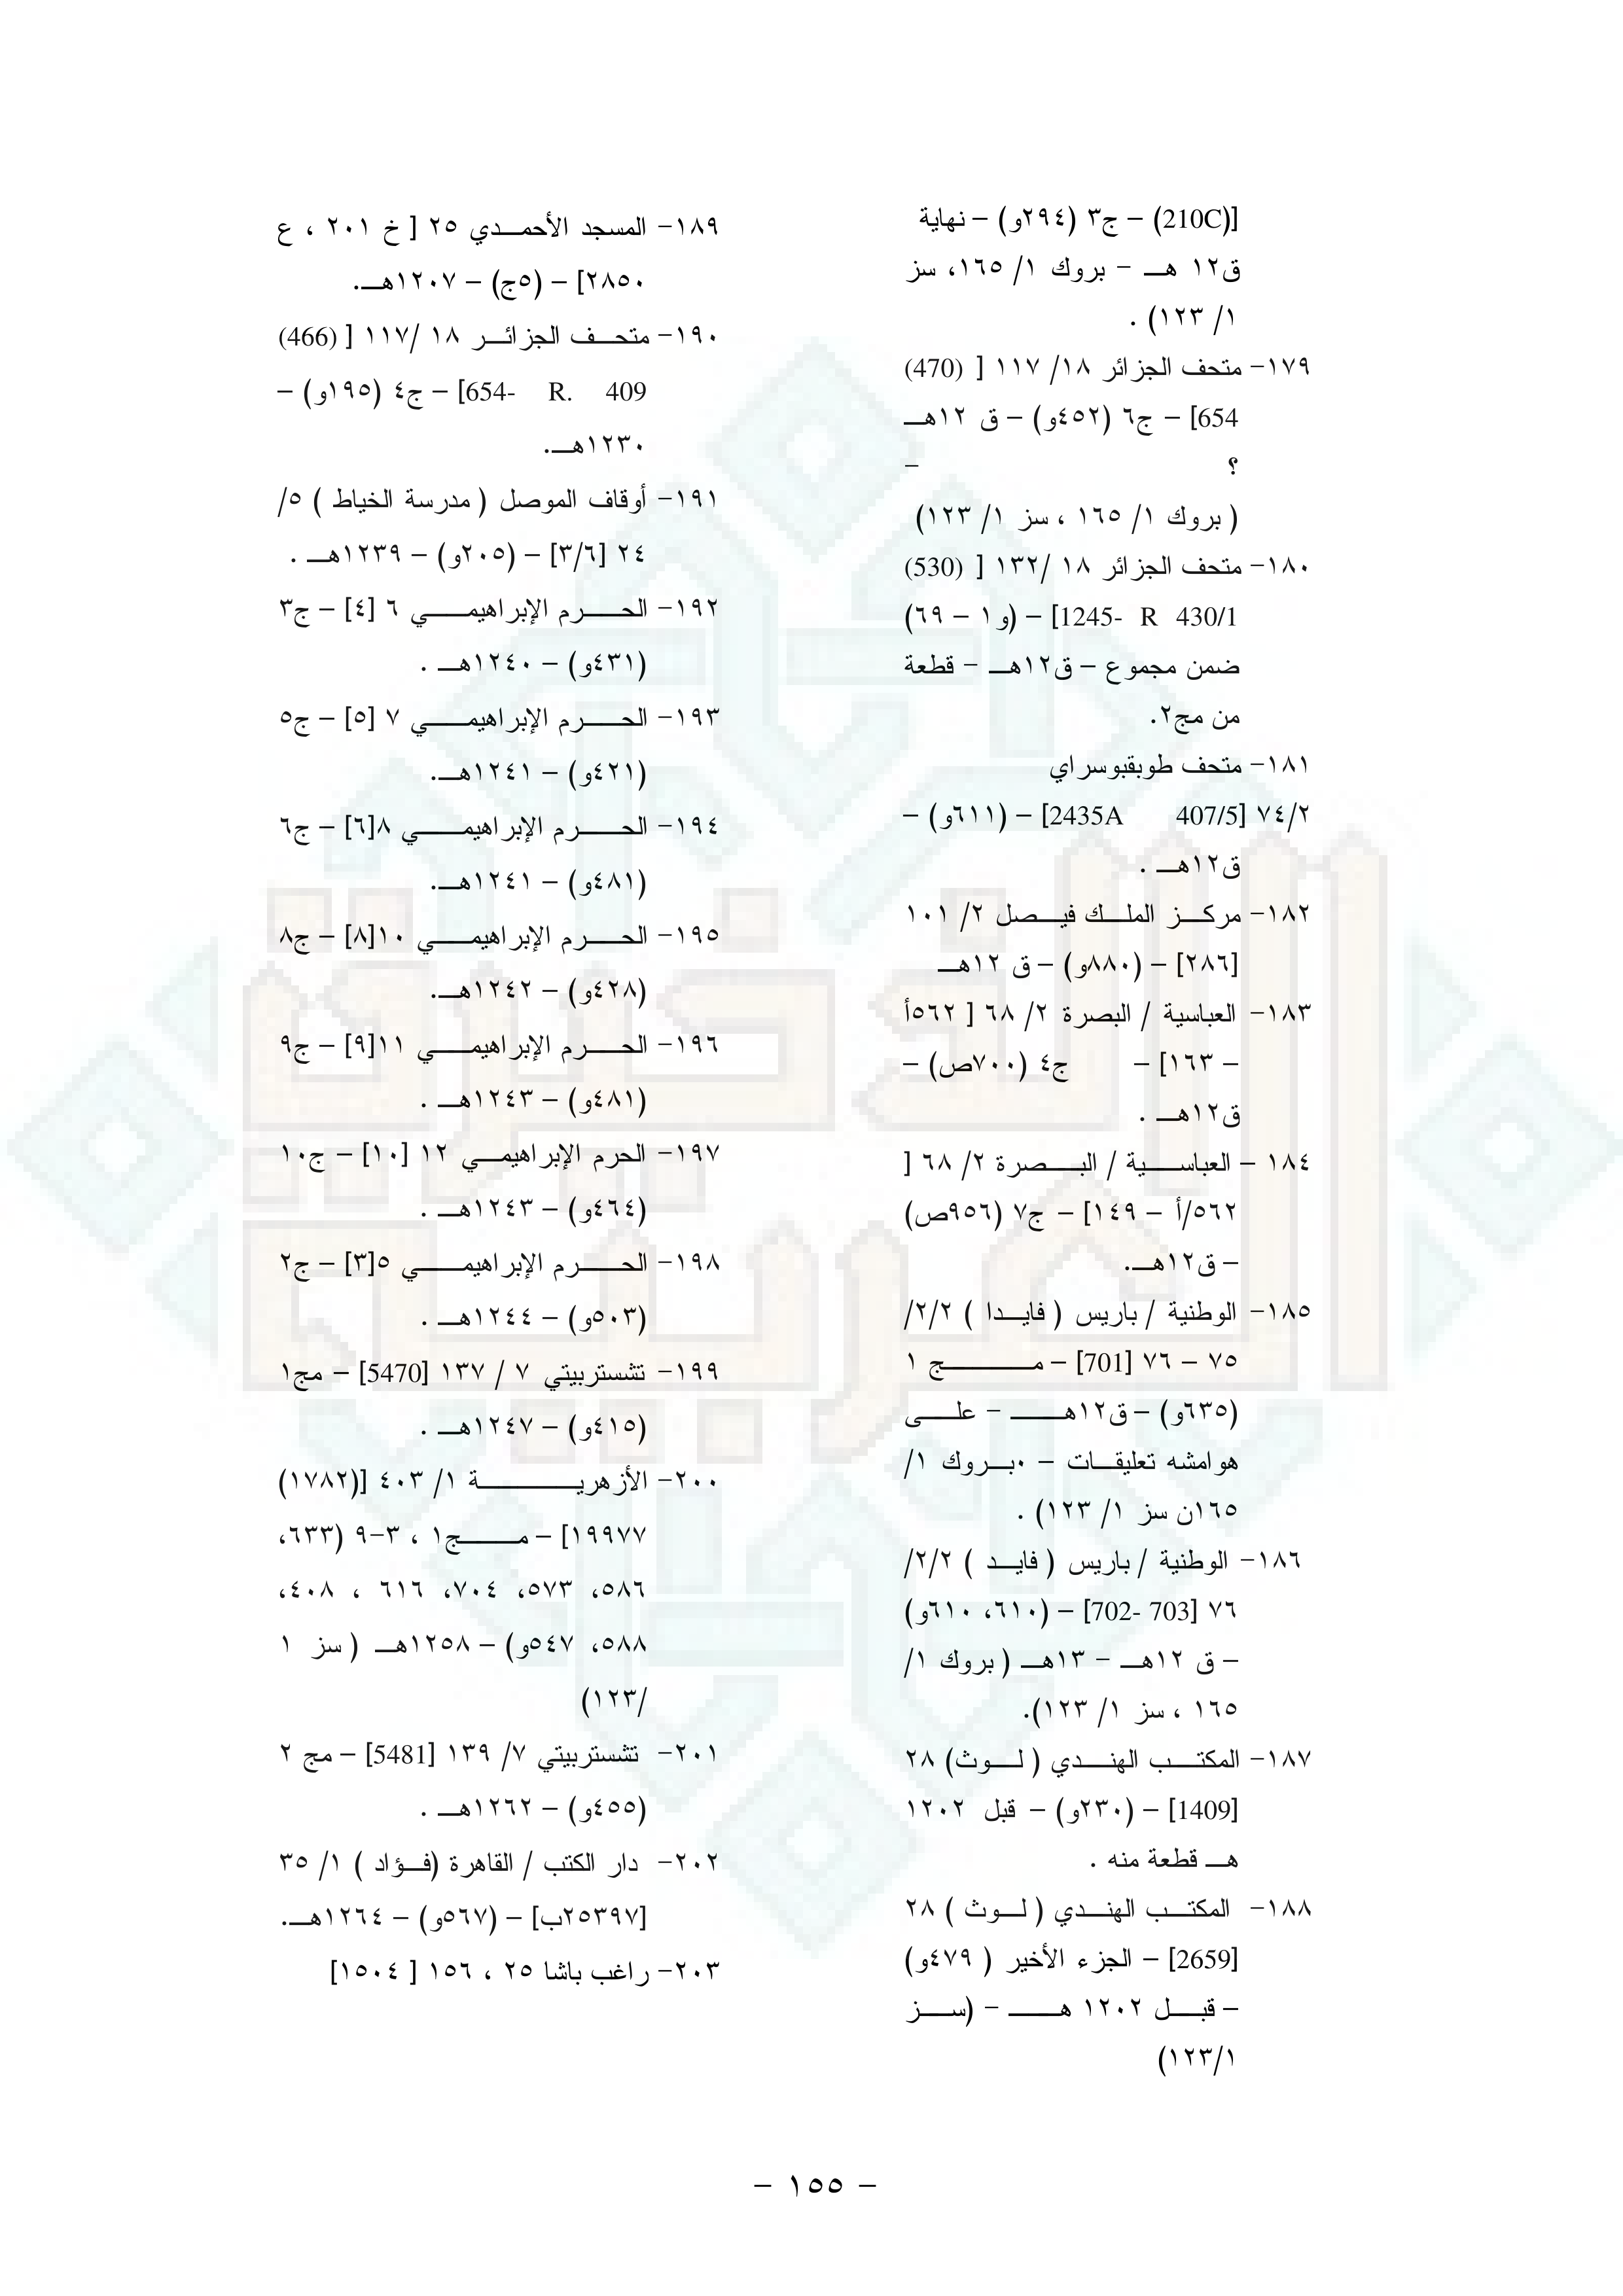 [(210C) – ج٣ (٢٩٤و) – نهاية
ق١٢ هـ – بروك ١/ ١٦٥، سز
١/ ١٢٣) .
١٧٩- متحف الجزائر ١٨/ ١١٧ [ (470)
654] – ج٦ (٤٥٢و) – ق ١٢هـ
؟ –
( بروك ١/ ١٦٥ ، سز ١/ ١٢٣)
١٨٠- متحف الجزائر ١٨ /١٣٢ [ (530)
1245- R 430/1] – (و١ – ٦٩)
ضمن مجموع – ق١٢هـ – قطعة
من مج٢.
١٨١- متحف طوبقبوسراي
٧٤/٢ [2435A 407/5] – (٦١١و) –
ق١٢هـ .
١٨٢- مركز الملك فيصل ٢/ ١٠١
[٢٨٦] – (٨٨٠و) – ق ١٢هـ
١٨٣- العباسية / البصرة ٢/ ٦٨ [ ٥٦٢أ
– ١٦٣] – ج٤ (٧٠٠ص) –
ق١٢هـ .
١٨٤ – العباسية / البصرة ٢/ ٦٨ [
٥٦٢/أ – ١٤٩] – ج٧ (٩٥٦ص)
– ق١٢هـ.
١٨٥- الوطنية / باريس ( فايدا ) ٢/٢/
٧٥ – ٧٦ [701] – مج ١
(٦٣٥و) – ق١٢هـ – على
هوامشه تعليقات – ٠بروك ١/
١٦٥ن سز ١/ ١٢٣) .
١٨٦- الوطنية / باريس ( فايد ) ٢/٢/
٧٦ [702- 703] – (٦١٠، ٦١٠و)
– ق ١٢هـ – ١٣هـ ( بروك ١/
١٦٥ ، سز ١/ ١٢٣).
١٨٧- المكتب الهندي ( لوث) ٢٨
[1409] – (٢٣٠و) – قبل ١٢٠٢
هـ قطعة منه .
١٨٨- المكتب الهندي ( لوث ) ٢٨
[2659] – الجزء الأخير ( ٤٧٩و)
– قبل ١٢٠٢ هـ – (سز
١/١٢٣)
١٨٩- المسجد الأحمدي ٢٥ [ خ ٢٠١ ، ع
٢٨٥٠] – (٥ج) – ١٢٠٧هـ.
١٩٠- متحف الجزائر ١٨ /١١٧ [ (466)
654- R. 409] – ج٤ (١٩٥و) –
١٢٣٠هـ.
١٩١- أوقاف الموصل ( مدرسة الخياط ) ٥/
٢٤ [٣/٦] – (٢٠٥و) – ١٢٣٩هـ .
١٩٢- الحرم الإبراهيمي ٦ [٤] – ج٣
(٤٣١و) – ١٢٤٠هـ .
١٩٣- الحرم الإبراهيمي ٧ [٥] – ج٥
(٤٢١و) – ١٢٤١هـ.
١٩٤- الحرم الإبراهيمي ٨[٦] – ج٦
(٤٨١و) – ١٢٤١هـ.
١٩٥- الحرم الإبراهيمي ١٠[٨] – ج٨
(٤٢٨و) – ١٢٤٢هـ.
١٩٦- الحرم الإبراهيمي ١١[٩] – ج٩
(٤٨١و) – ١٢٤٣هـ .
١٩٧- الحرم الإبراهيمي ١٢ [١٠] – ج١٠
(٤٦٤و) – ١٢٤٣هـ .
١٩٨- الحرم الإبراهيمي ٥[٣] – ج٢
(٥٠٣و) – ١٢٤٤هـ .
١٩٩- تشستربيتي ٧ / ١٣٧ [5470] – مج١
(٤١٥و) – ١٢٤٧هـ .
٢٠٠- الأزهرية ١/ ٤٠٣ [(١٧٨٢)
١٩٩٧٧] – مج١ ، ٣-٩ (٦٣٣،
٥٨٦، ٥٧٣، ٧٠٤، ٦١٦ ، ٤٠٨،
٥٨٨، ٥٤٧و) – ١٢٥٨هـ ( سز ١
/١٢٣)
٢٠١- تشستربيتي ٧/ ١٣٩ [5481] – مج ٢
(٤٥٥و) – ١٢٦٢هـ .
٢٠٢- دار الكتب / القاهرة (فؤاد ) ١/ ٣٥
[٢٥٣٩٧ب] – (٥٦٧و) – ١٢٦٤هـ.
٢٠٣- راغب باشا ٢٥ ، ١٥٦ [ ١٥٠٤]
– ١٥٥ –